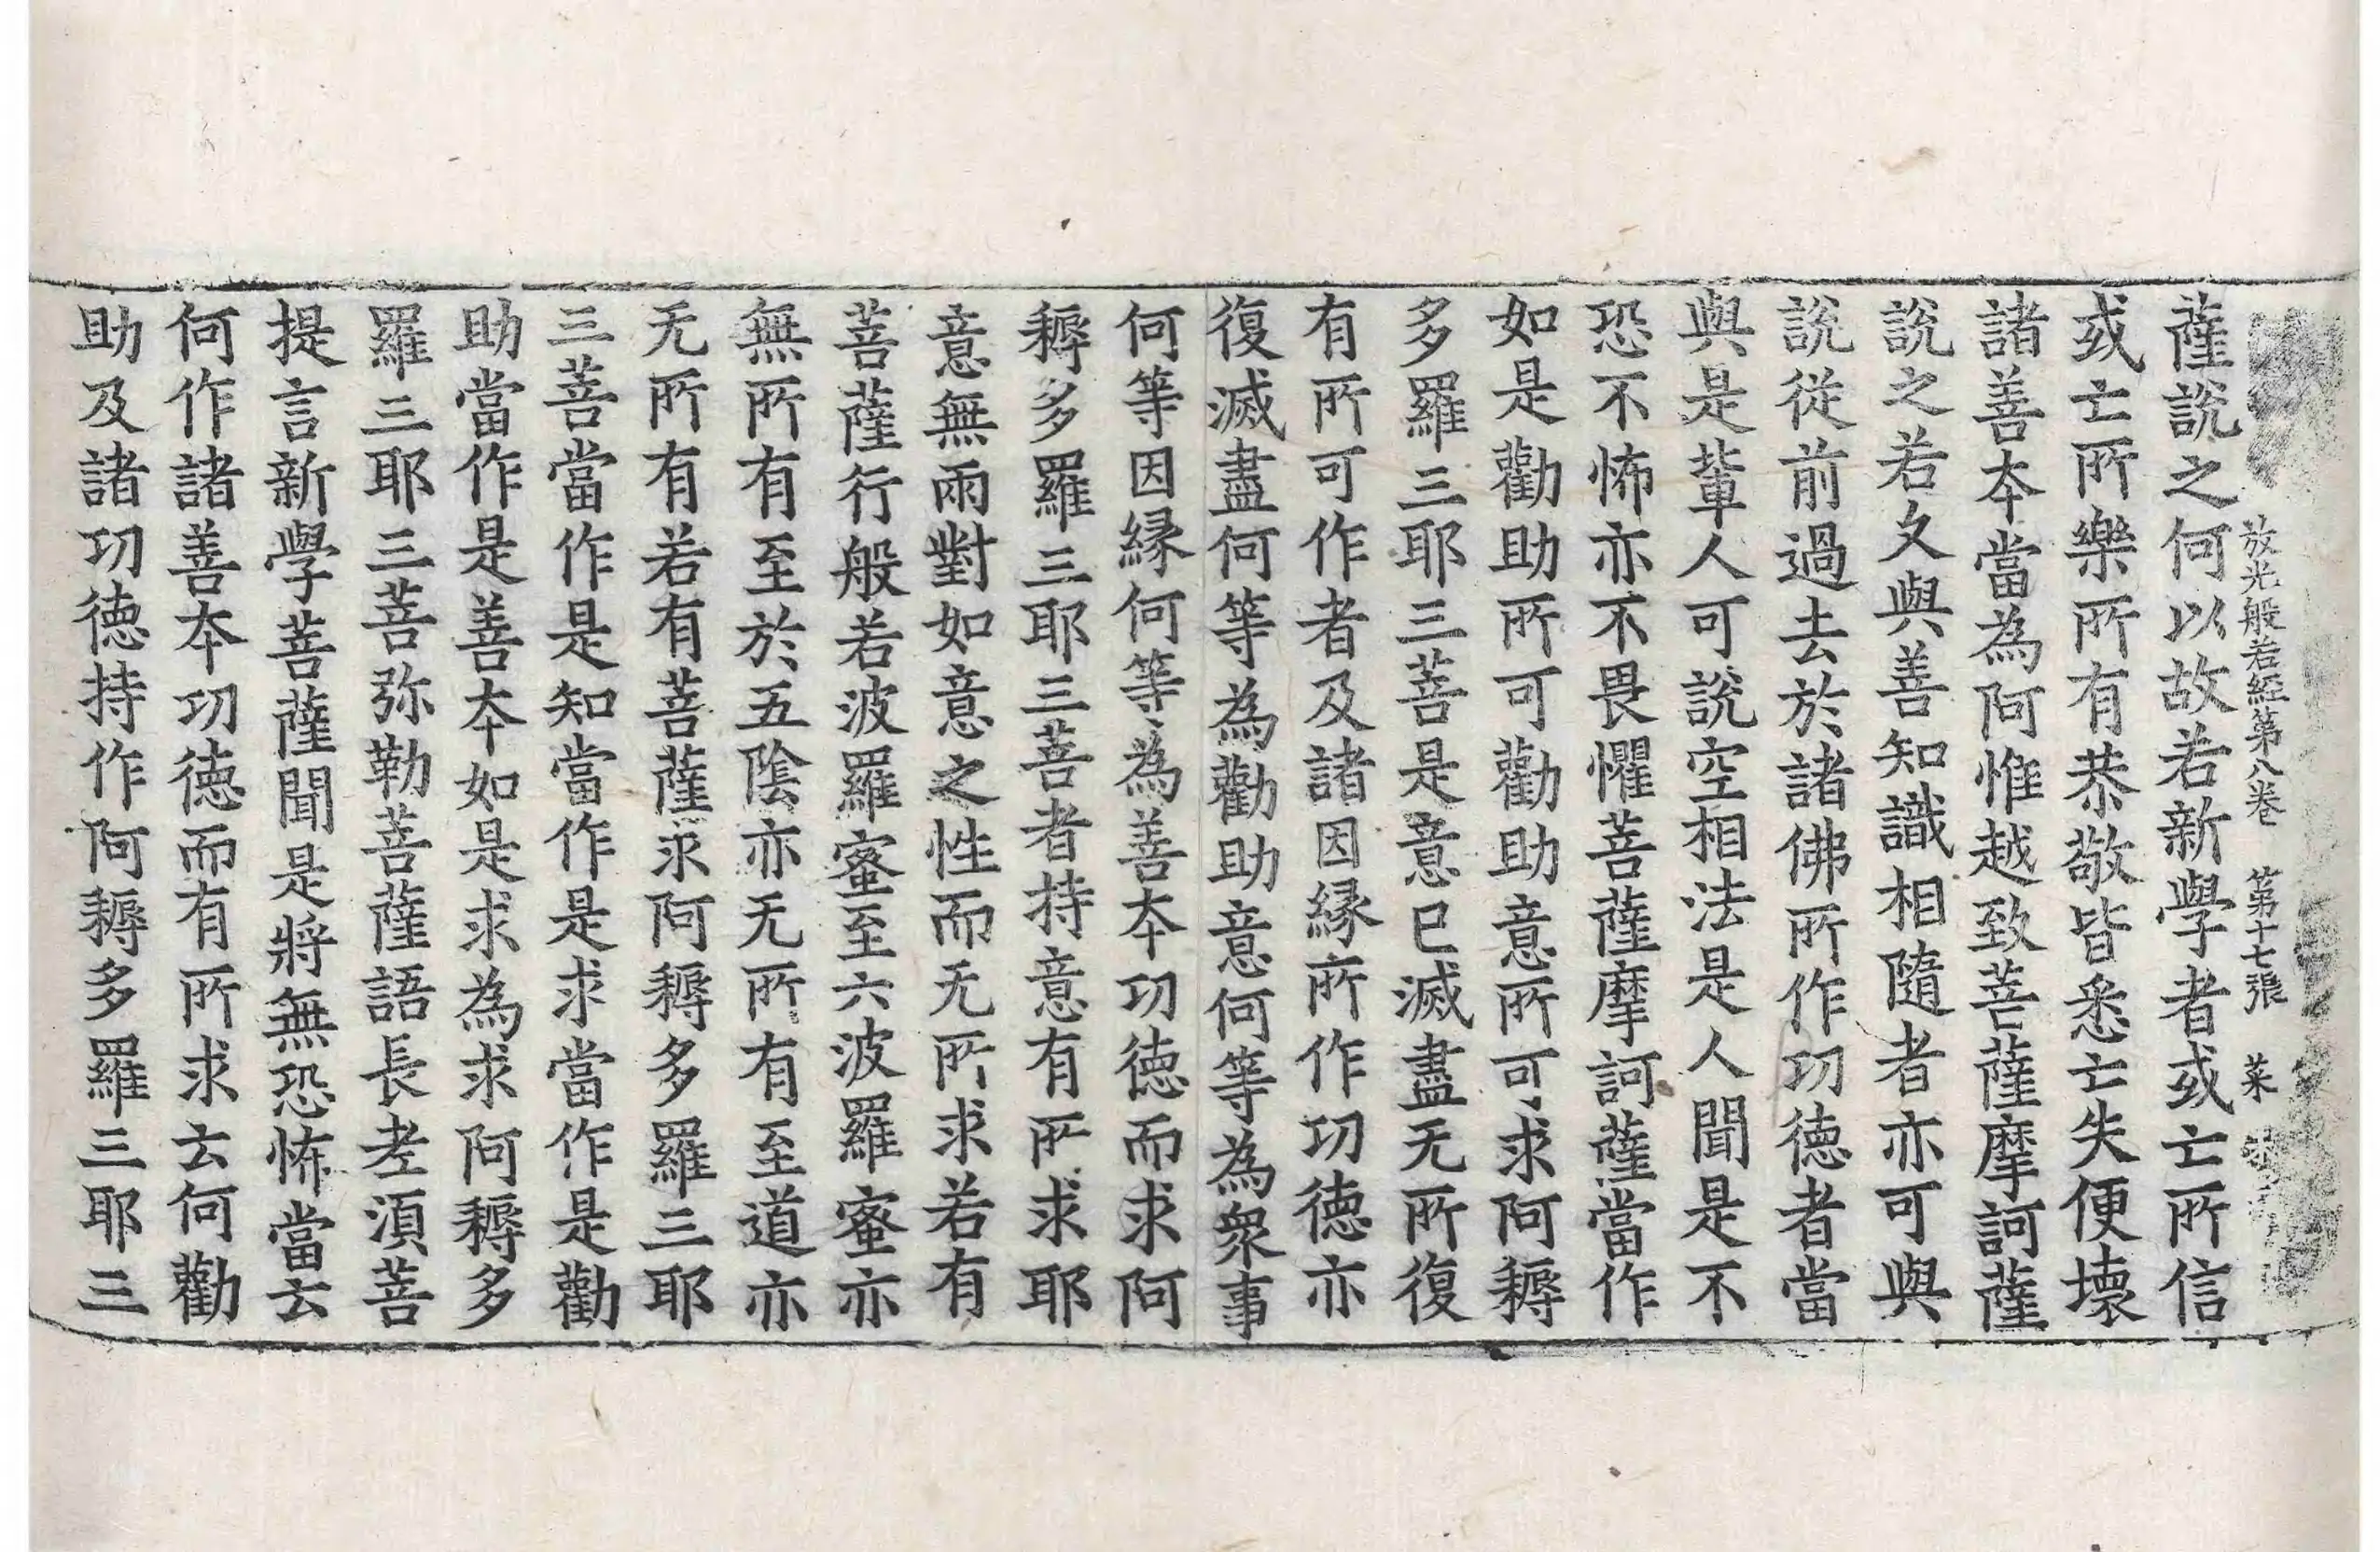 放光般若經第八卷　第十七張　菜
薩説之何以故若新學者或亡所信
或亡所樂所有恭敬皆悉亡失便壞
諸善本當為阿惟越致菩薩摩訶薩
説之若久與善知識相隨者亦可與
説從前過去於諸佛所作功德者當
與是輩人可説空相法是人聞是不
恐不怖亦不畏懼菩薩摩訶薩當作
如是勸助所可勸助意所可求阿耨
多羅三耶三菩是意已滅盡无所復
有所可作者及諸因縁所作功德亦
復滅盡何等為勸助意何等為衆事
何等因縁何等為善本功德而求阿
耨多羅三耶三菩者持意有所求耶
意無兩對如意之性而无所求若有
菩薩行般若波羅蜜至六波羅蜜亦
無所有至於五陰亦无所有至道亦
无所有若有菩薩求阿耨多羅三耶
三菩當作是知當作是求當作是勸
助當作是善本如是求為求阿耨多
羅三耶三菩弥勒菩薩語長老湏菩
提言新學菩薩聞是將無恐怖當云
何作諸善本功德而有所求云何勸
助及諸功德持作阿耨多羅三耶三